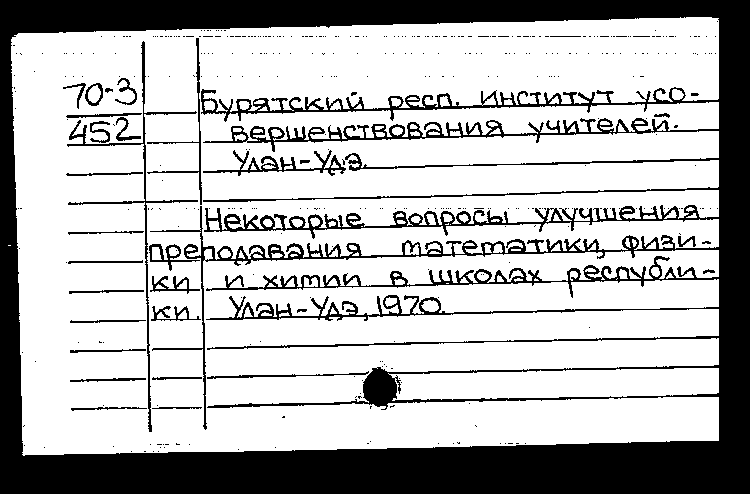 70-3
452
Бурятский респ. институт усо-
вершенствования учителей.
Улан-Удэ.
Некоторые вопросы улучшения
преподавания математики, физи-
ки и химии в школах республи-
ки. Улан-Удэ, 1970.